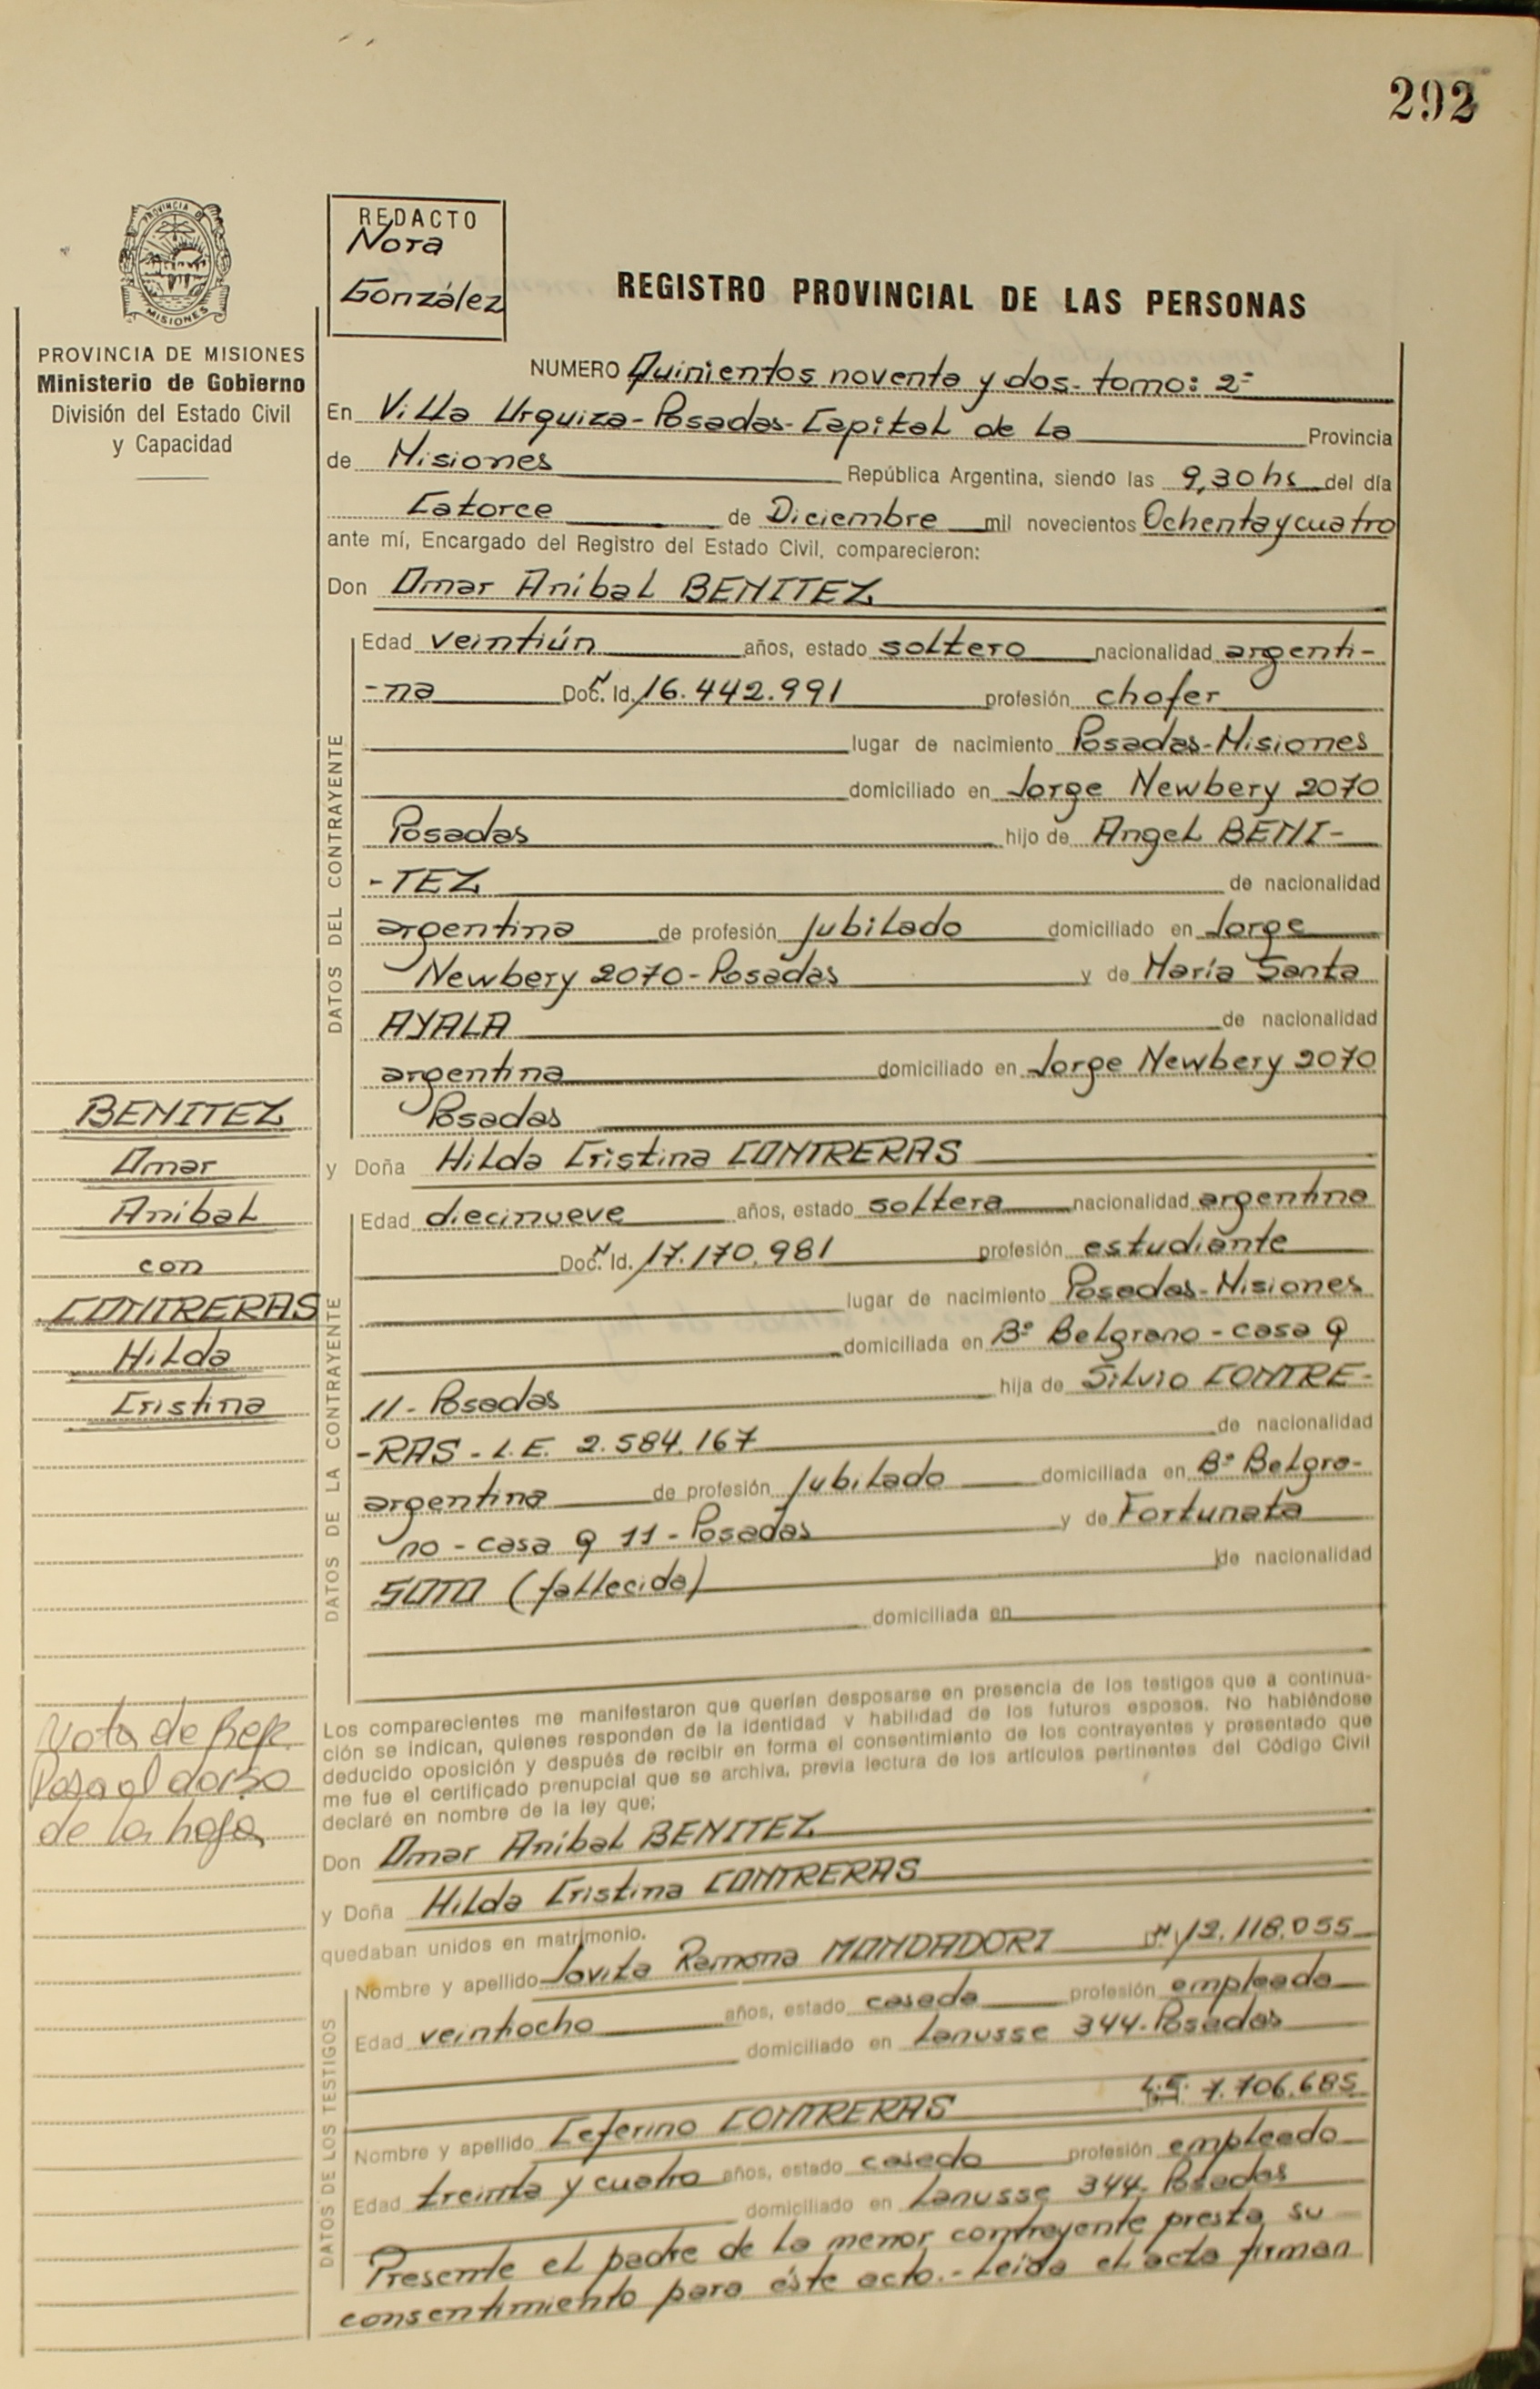 292
PROVINCIA DE
MISIONES
PROVINCIA DE MISIONES
Ministerio de Gobierno
División del Estado Civil
y Capacidad
REDACTO
Nora
González
REGISTRO PROVINCIAL DE LAS PERSONAS
NUMERO Quinientos noventa y dos - tomo: 2º
En Villa Urquiza - Posadas - Capital de la Provincia
de Misiones República Argentina, siendo las 9,30 hs del día
Catorce de Diciembre mil novecientos Ochenta y cuatro
ante mí, Encargado del Registro del Estado Civil, comparecieron:
Don Omar Anibal BENITEZ
DATOS DEL CONTRAYENTE
Edad veintiún años, estado soltero nacionalidad argenti-
-na Doc. Id. Nº 16.442.991 profesión chofer
lugar de nacimiento Posadas - Misiones
domiciliado en Jorge Newbery 2070
Posadas hijo de Angel BENI-
-TEZ de nacionalidad
argentina de profesión jubilado domiciliado en Jorge
Newbery 2070 - Posadas y de María Santa
AYALA de nacionalidad
argentina domiciliado en Jorge Newbery 2070
Posadas
y Doña Hilda Cristina CONTRERAS
DATOS DE LA CONTRAYENTE
Edad diecinueve años, estado soltera nacionalidad argentina
Doc. Id. Nº 17.170.981 profesión estudiante
lugar de nacimiento Posadas - Misiones
domiciliada en Bº Belgrano - casa 9
11 - Posadas hija de Silvio CONTRE-
-RAS - L.E. 2.584.167 de nacionalidad
argentina de profesión jubilado domiciliada en Bº Belgra-
no - casa 9 11 - Posadas y de Fortunata
SOTO (fallecida) de nacionalidad
domiciliada en
Los comparecientes me manifestaron que querían desposarse en presencia de los testigos que a continua-
ción se indican, quienes responden de la identidad y habilidad de los futuros esposos. No habiéndose
deducido oposición y después de recibir en forma el consentimiento de los contrayentes y presentado que
me fue el certificado prenupcial que se archiva, previa lectura de los artículos pertinentes del Código Civil
declaré en nombre de la ley que;
Don Omar Anibal BENITEZ
y Doña Hilda Cristina CONTRERAS
quedaban unidos en matrimonio.
DATOS DE LOS TESTIGOS
Nombre y apellido Jovita Ramona MONDADORI Nº 12.118.055
Edad veintiocho años, estado casada profesión empleada
domiciliado en Lanusse 344 - Posadas
Nombre y apellido Ceferino CONTRERAS L.E. 7.706.685
Edad treinta y cuatro años, estado casado profesión empleado
domiciliado en Lanusse 344 - Posadas
Presente el padre de la menor contrayente presta su
consentimiento para éste acto. - Leída el acta firman
BENITEZ
Omar
Anibal
con
CONTRERAS
Hilda
Cristina
Nota de Ref.
Pasa al dorso
de la hoja